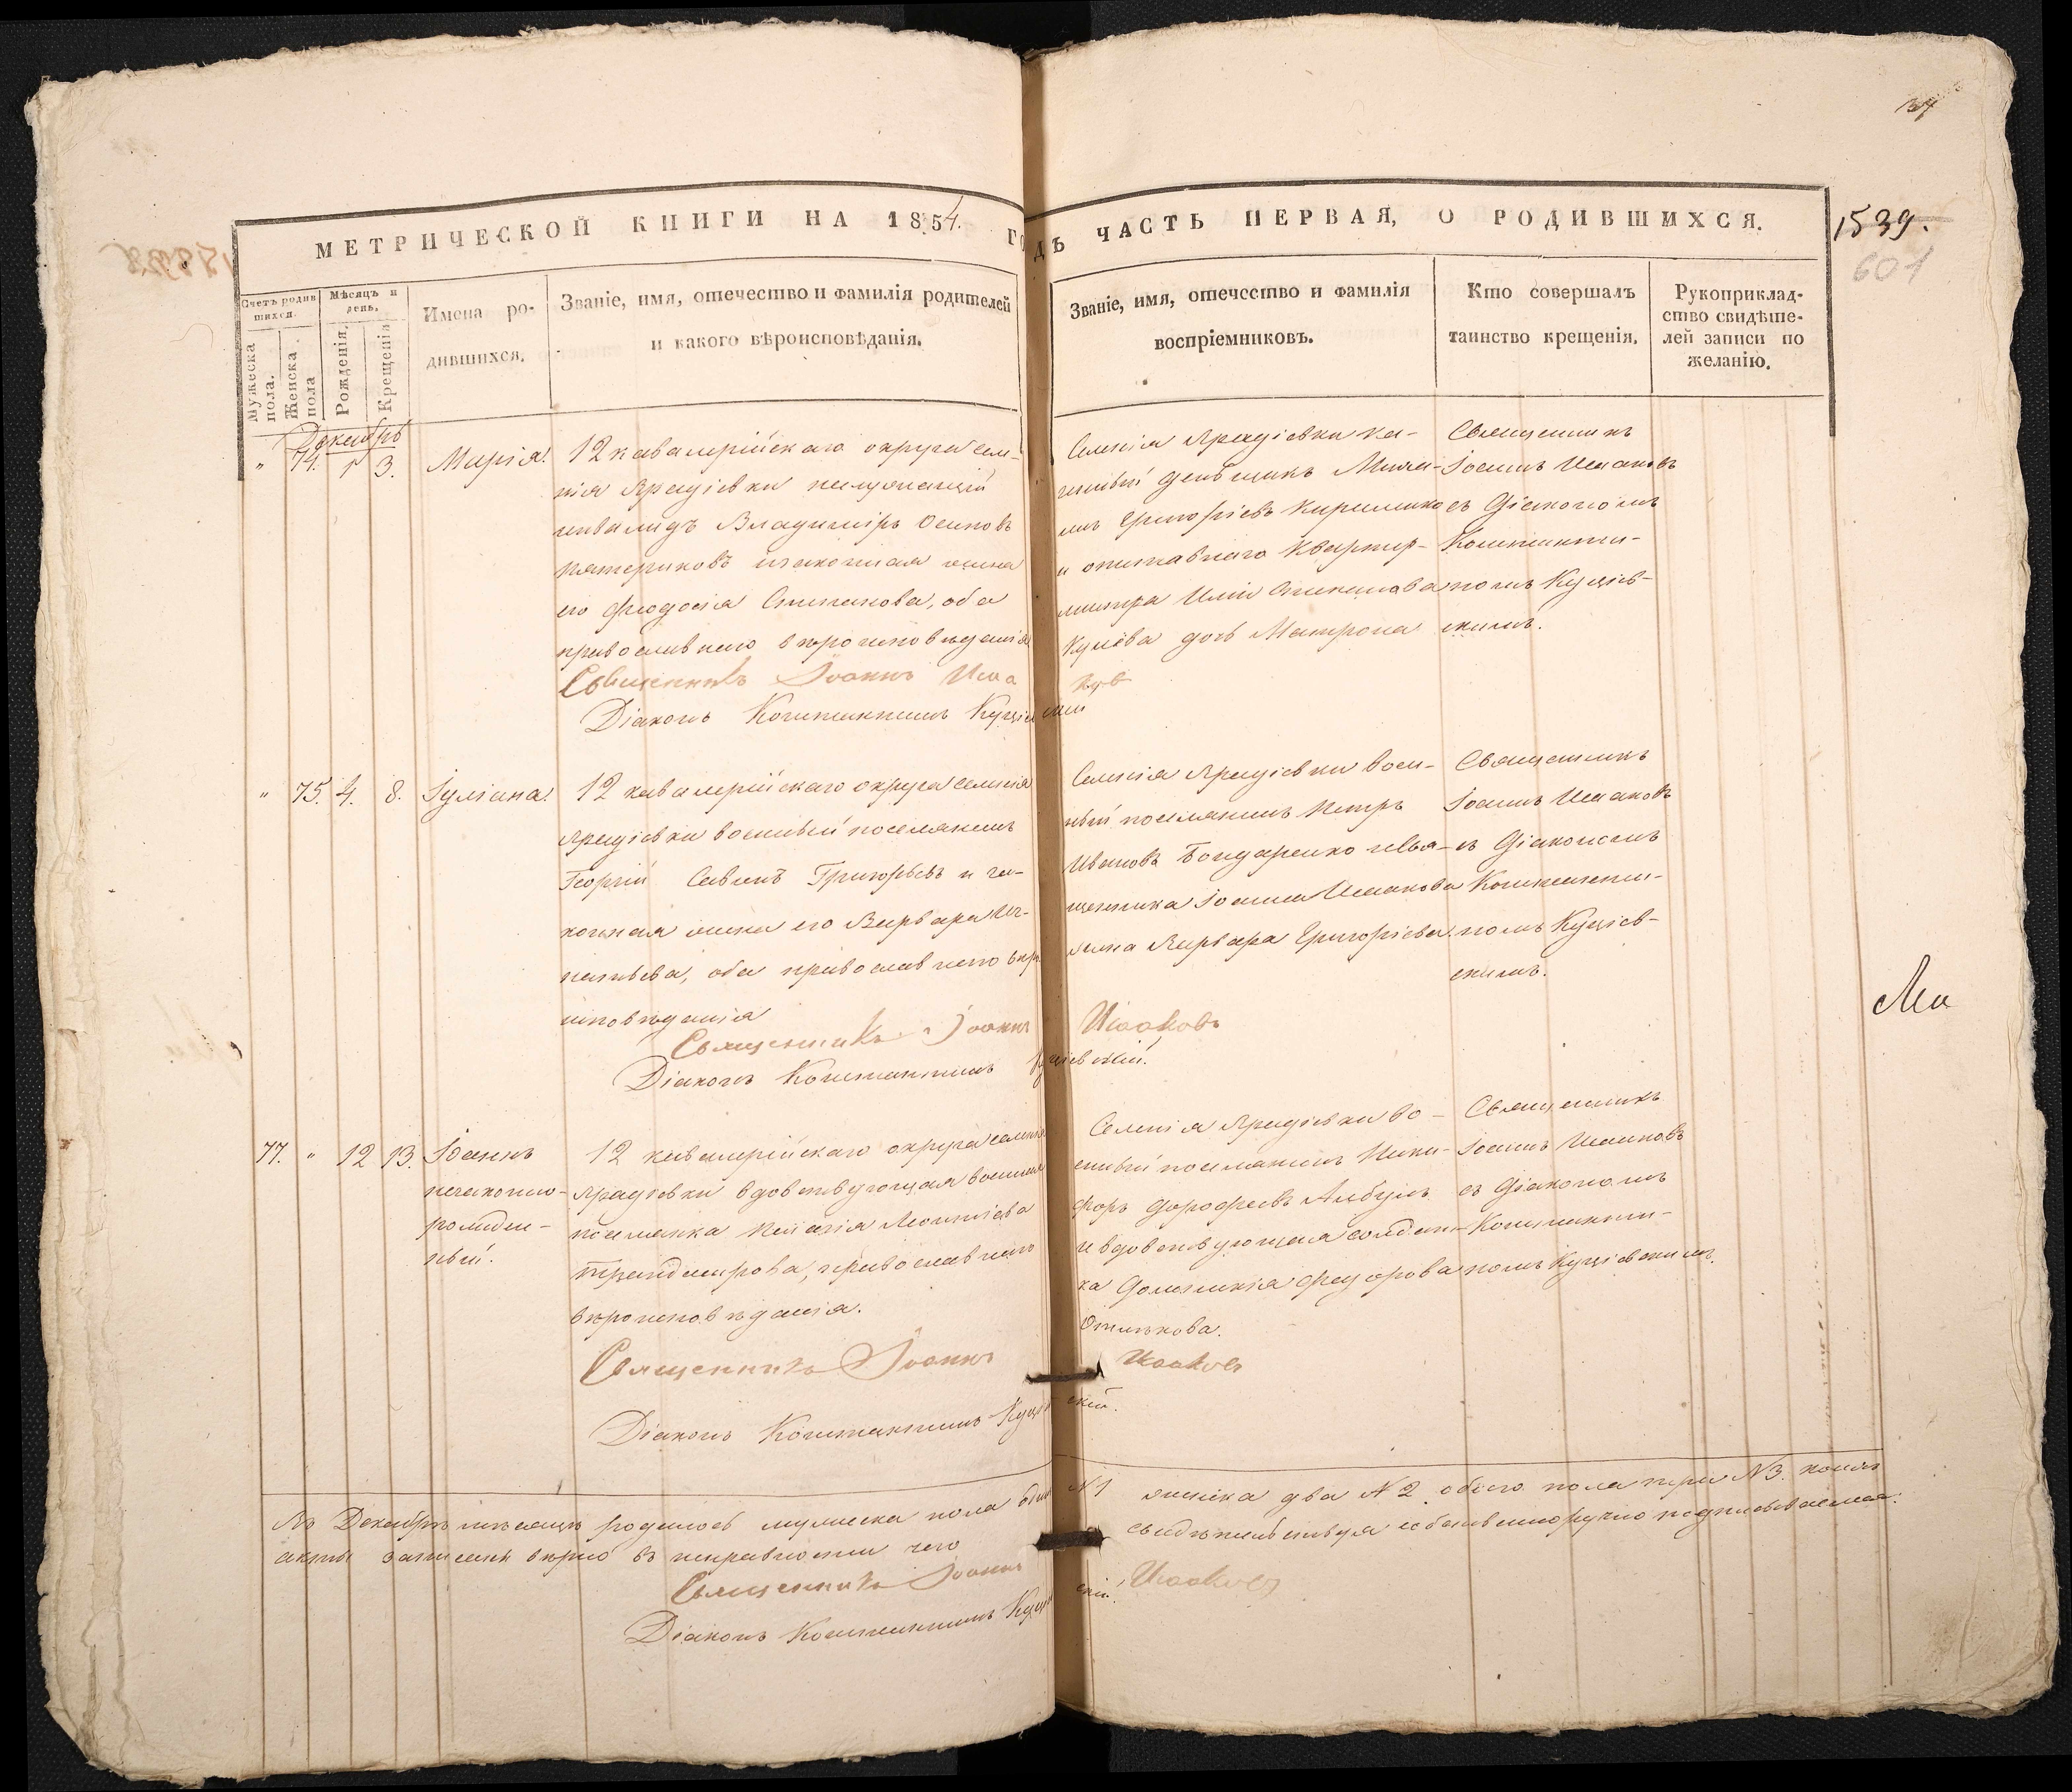 134
МЕТРИЧЕСКОЙ КНИГИ НА 1854. ГОДЪ ЧАСТЬ ПЕРВАЯ, О РОДИВШИХСЯ.
1539.
601
Счетъ родив
шихся.
Мѣсяцъ и
день.
Мужеска
пола.
Женска
пола
Рожденія.
Крещенія
Имена ро-
дившихся.
Званіе, имя, отечество и фамилія родителей
и какого вѣроисповѣданія.
Званіе, имя, отечество и фамилія
воспріемниковъ.
Кто совершалъ
таинство крещенія.
Рукоприклад-
ство свидѣте-
лей записи по
желанію.
Декабрь
" 74. 1 3. Марія.
12 кавалерійскаго округа селе-
нія Аркадіевки
инвалидъ Владиміръ Осиповъ
законная жена
его Феодосія Степанова, оба
православнаго вѣроисповѣданія
Священникъ Іоаннъ Исаа
ковъ
Діаконъ Константинъ Куціевскій
Селенія Аркадіевки
деньщикъ
Григорьевъ
и отставнаго Квартер-
мистра Степанова
дочь Матрона
Священникъ
Іоаннъ Исааковъ
съ Діакономъ
Константи-
номъ Куціев-
скимъ.
" 75. 4. 8. Іуліана.
12 кавалерійскаго округа селенія
Аркадіевки военный поселянинъ
Георгій Савинъ Григорьевъ и за-
конная жена его Варвара Иг-
натьева, оба православнаго вѣро
исповѣданія
Священникъ Іоаннъ Исааковъ
Діаконъ Константинъ Куціевскій.
Селенія Аркадіевки воен-
ный поселянинъ Петръ
Ивановъ Бондаренко и свя-
щенника Іоанна Исаакова
жена Варвара Григорьева.
Священникъ
Іоаннъ Исааковъ
съ Діакономъ
Константи-
номъ Куціев-
скимъ.
Ма
77. " 12 13. Іоаннъ
незаконно-
рожден-
ный.
12 кавалерійскаго округа селенія
Аркадіевки вдовствующая военная
поселянка Пелагія Леонтіева
православнаго
вѣроисповѣданія.
Священникъ Іоаннъ Исааковъ
Діаконъ Константинъ Куціевскій.
Селенія Аркадіевки во-
енный поселянинъ Ники-
форъ Дорофеевъ
и вдовствующая солдат-
ка Домникія Федорова
Священникъ
Іоаннъ Исааковъ
съ Діакономъ
Константи-
номъ Куціевскимъ.
Въ Декабрѣ мѣсяцѣ родилось мужеска пола одинъ № 1 женска два № 2 обоего пола три № 3.
акты записаны вѣрно въ исправности чего свидѣтельствуя собственноручно подписываемся.
Священникъ Іоаннъ Исааковъ
Діаконъ Константинъ Куціевскій.